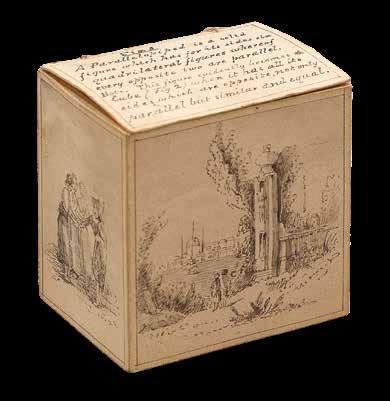 Fig 2.
A Parallelopiped is a solid
figure which has for its sides six
quadrilateral figures whereof
every opposite two are parallel.
This figure evidently becomes a
Cube (Fig 2) when it has all its
sides which are opposite, not only
parallel but similar and equal.